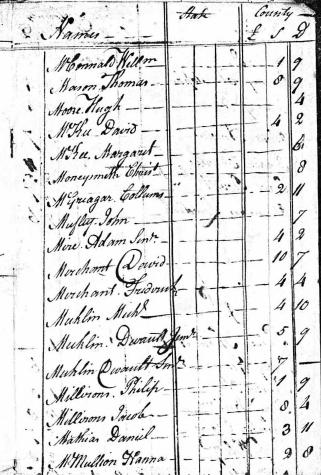 Names State County
£ S D
McConnald Willm 1 9
Mason Thomas 8 9
Moore Hugh 4
McKee David 4 2
McKee Margaret 6
Moneysmith Christ 8
McGreagar Collums 2 11
Musley John 7
Mire Adam Senr 4 2
Merchant David 10 7
Merchant Fredrick 4 4
Mechlin Michl 4 10
Mechlin Dewalt Senr 5 9
Mechlin Dewalt Jnr 7
Millirons Philip 1 9
Millirons Jacob 8 4
Mathias Daniel 3 11
McMullson Hanna 2 8